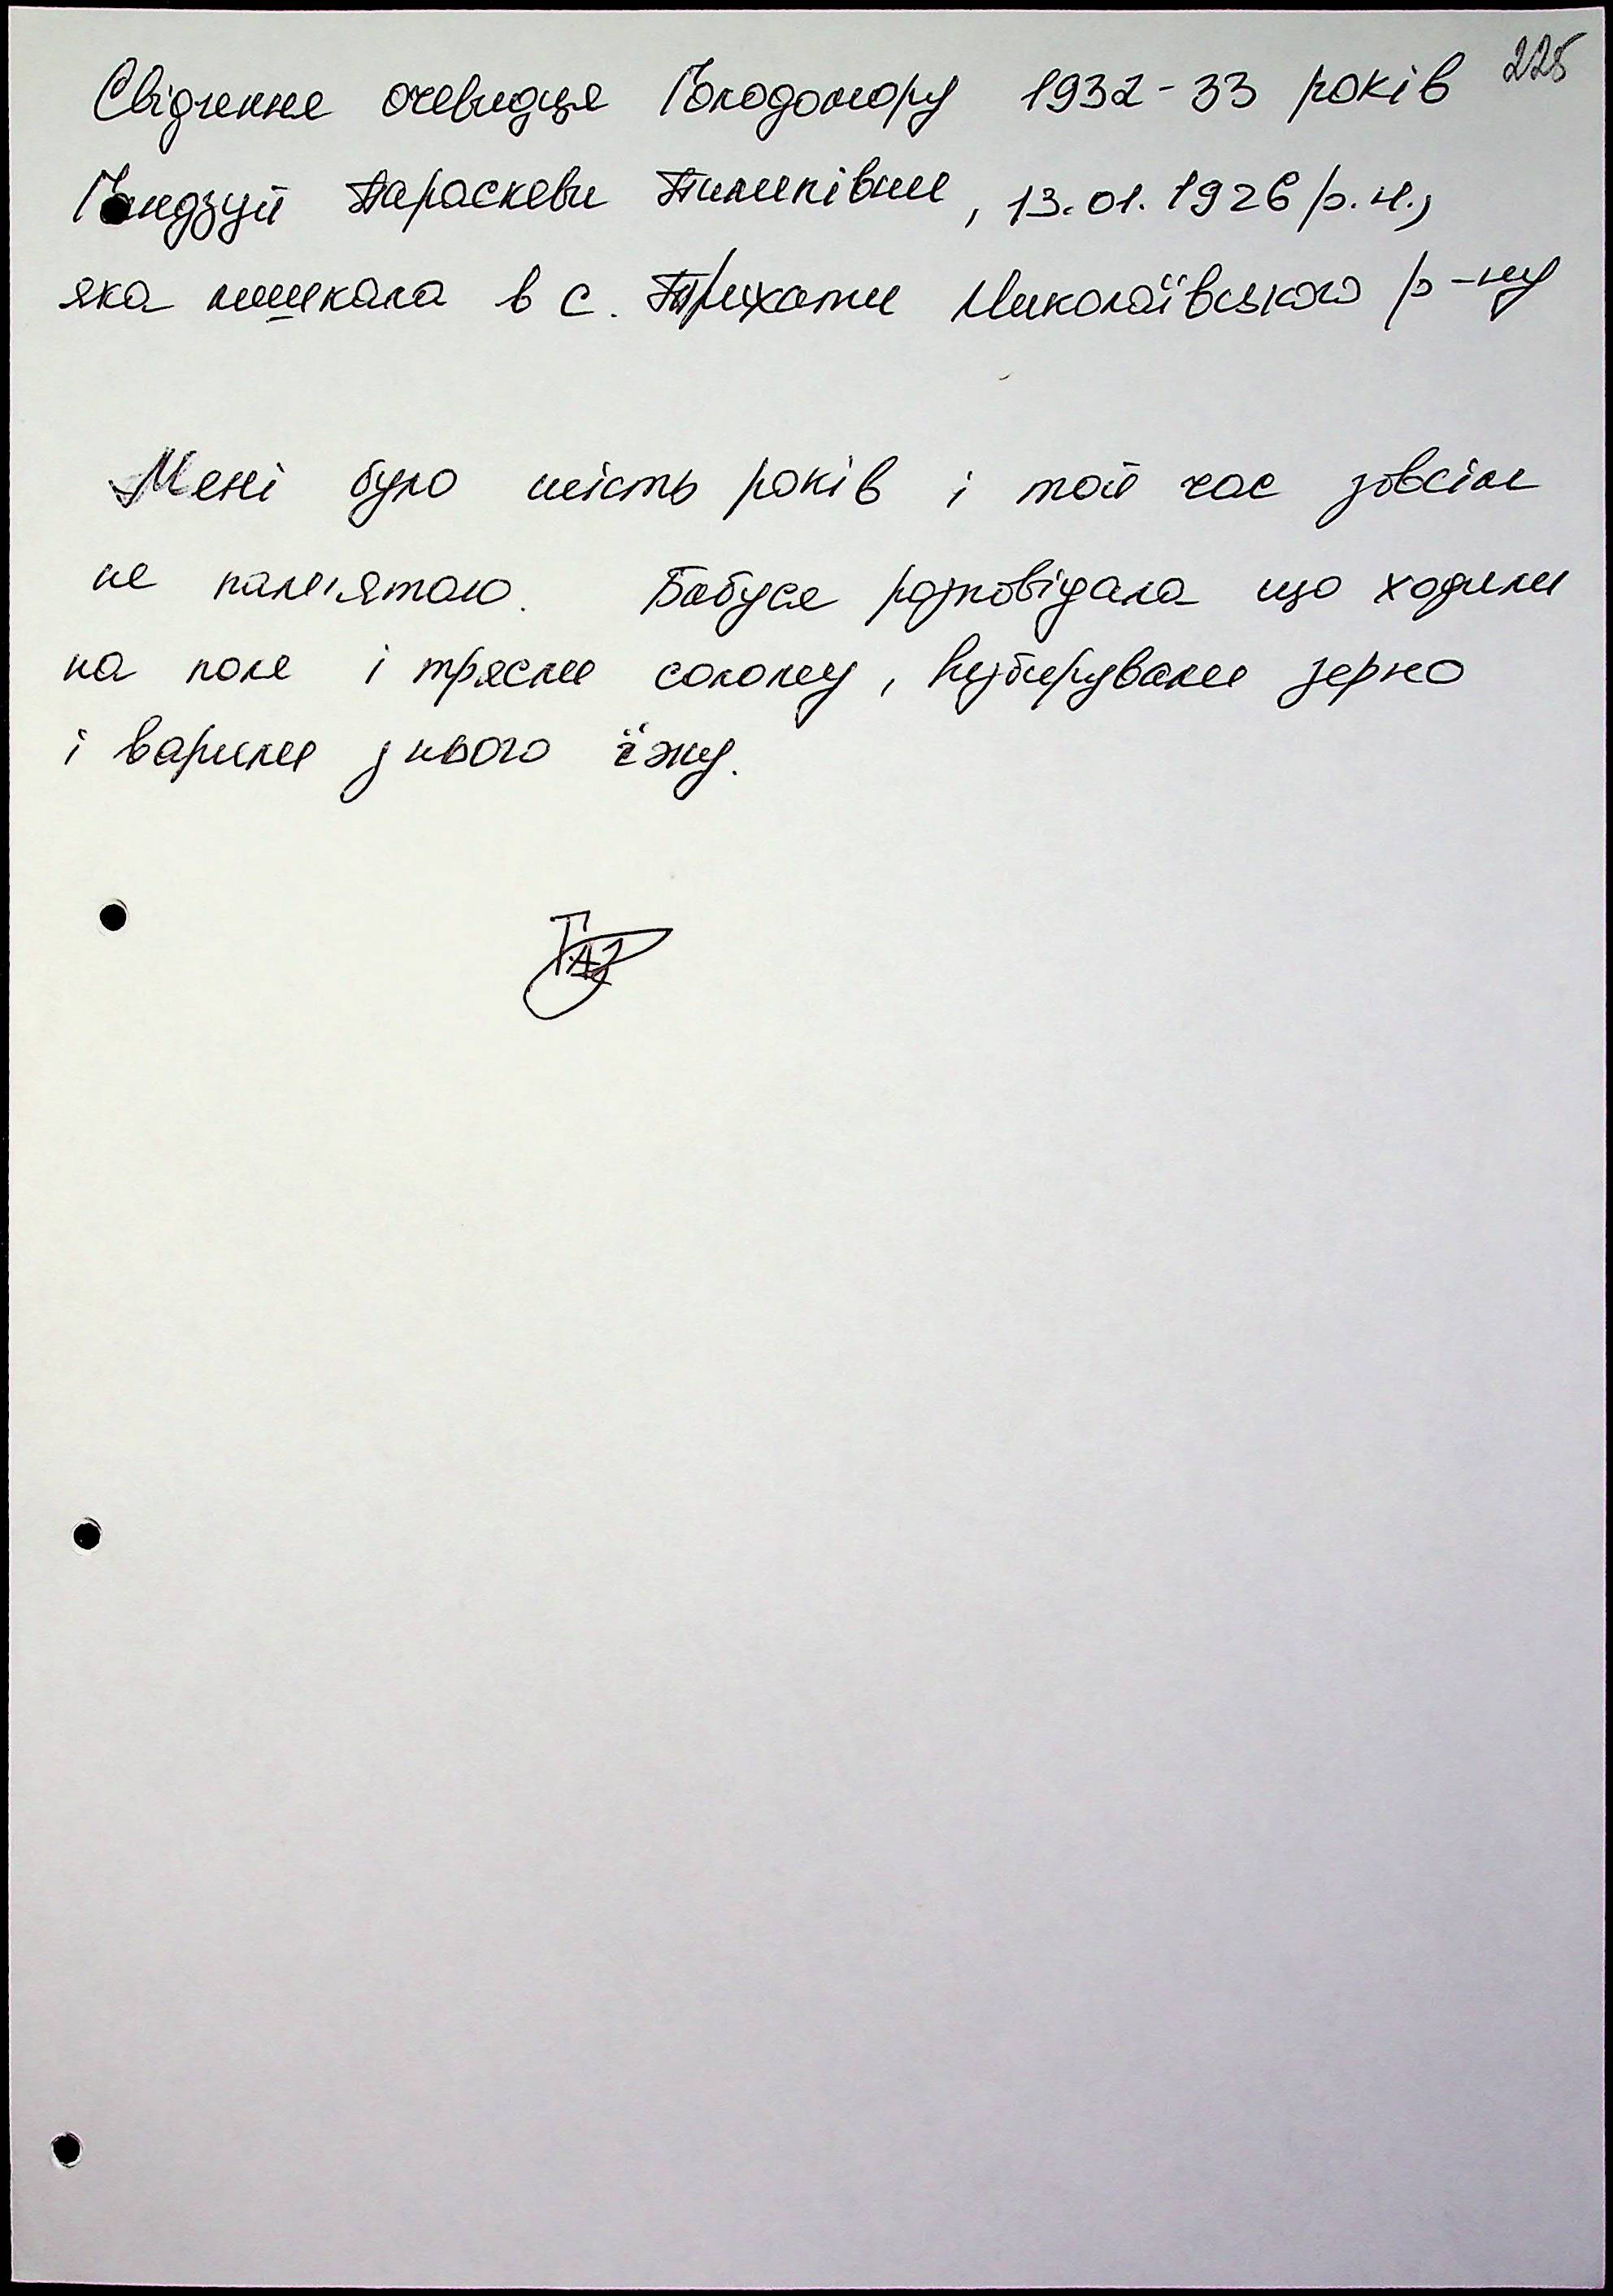 225
Свідчення очевидця Голодомору 1932-33 років
Гандзуй Параскеви Пилипівни, 13.01.1926 р.н.,
яка мешкала в с. Трихати Миколаївського р-ну
Мені було шість років і той час зовсім
не пам'ятаю. Бабуся розповідала що ходили
на поле і трясли солому, визбирували зерно
і варили з нього їжу.